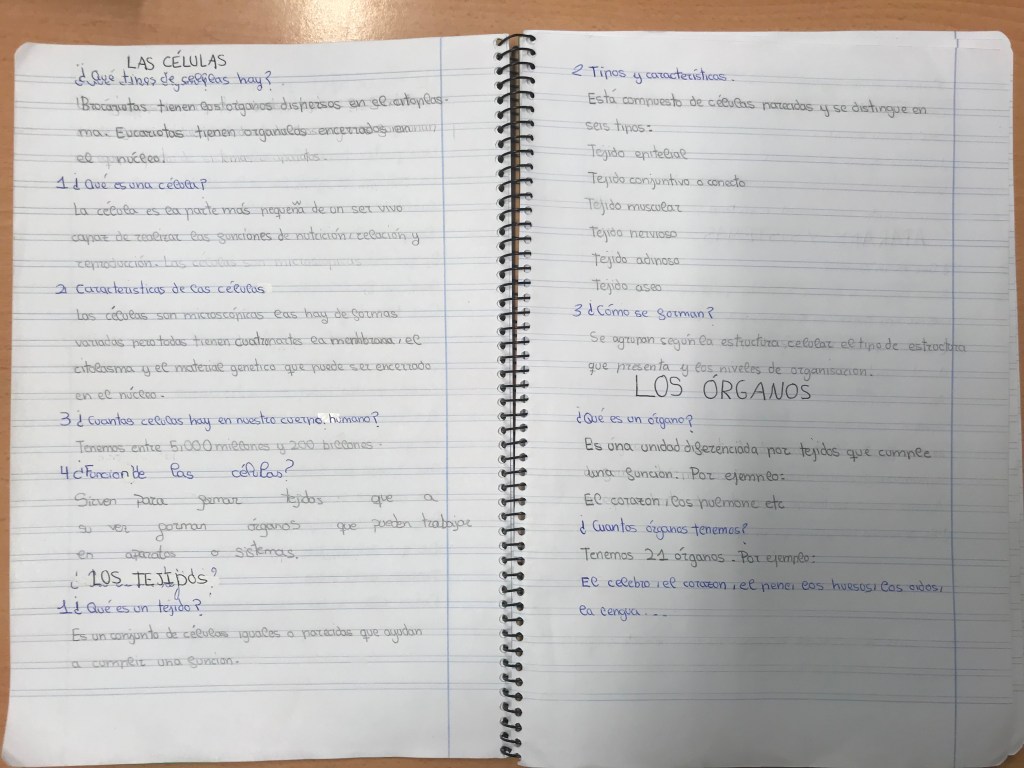 LAS CÉLULAS
¿Qué tipos de células hay?
Procariotas tienen los órganos dispersos en el citoplas-
ma. Eucariotas tienen organulos encerrados en
el núcleo.
1 ¿Qué es una célula?
La célula es la parte más pequeña de un ser vivo
capaz de realizar las funciones de nutrición, relación y
reproducción. Las células son microscópicas
2 Caracteristicas de las células
Las células son microscópicas las hay de formas
variadas pero todas tienen cuatro partes la membrana, el
citolasma y el material genetico que puede ser encerrado
en el núcleo.
3 ¿Cuantas celulas hay en nuestro cuerpo humano?
Tenemos entre 5,000 millones y 200 billones.
4 ¿Funcion de las células?
Sirven para formar tejidos que a
su vez forman órganos que pueden trabajar
en aparatos o sistemas.
¿LOS TEJIDOS?
1 ¿Qué es un tejido?
Es un conjunto de células iguales o parecidas que ayudan
a cumplir una funcion.
2 Tipos y características.
Está compuesto de células parecidas y se distingue en
seis tipos:
Tejido epitelial
Tejido conjuntivo o conecto
Tejido muscular
Tejido nervioso
Tejido adinoso
Tejido oseo
3 ¿Cómo se forman?
Se agrupan según la estructura celular el tipo de estructura
que presenta y los niveles de organisacion.
LOS ÓRGANOS
¿Qué es un órgano?
Es una unidad diferenciada por tejidos que cumple
una funcion. Por ejemplo:
El corazón, los pulmone etc
¿Cuantos órganos tenemos?
Tenemos 21 órganos. Por ejemplo:
El celebro, el corazon, el pene, los huesos, los oidos,
la lengua...